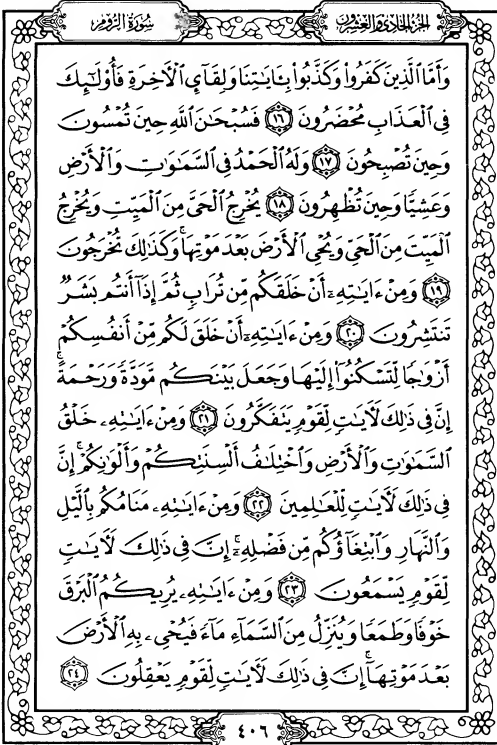 سُورَةُ الرُّومِ
الجُزءُ الحَادِي وَالعِشرُونَ
وَأَمَّا الَّذِينَ كَفَرُوا وَكَذَّبُوا بِـَٔايَـٰتِنَا وَلِقَآئِ الْأَخِرَةِ فَأُوْلَـٰٓئِكَ
فِي الْعَذَابِ مُحْضَرُونَ ١٦ فَسُبْحَـٰنَ اللَّهِ حِينَ تُمْسُونَ
وَحِينَ تُصْبِحُونَ ١٧ وَلَهُ الْحَمْدُ فِي السَّمَـٰوَٰتِ وَالْأَرْضِ
وَعَشِيًّا وَحِينَ تُظْهِرُونَ ١٨ يُخْرِجُ الْحَيَّ مِنَ الْمَيِّتِ وَيُخْرِجُ
الْمَيِّتَ مِنَ الْحَيِّ وَيُحْيِ الْأَرْضَ بَعْدَ مَوْتِهَا ۚ وَكَذَٰلِكَ تُخْرَجُونَ
١٩ وَمِنْ ءَايَـٰتِهِۦٓ أَنْ خَلَقَكُم مِّن تُرَابٍ ثُمَّ إِذَآ أَنتُم بَشَرٌ
تَنتَشِرُونَ ٢٠ وَمِنْ ءَايَـٰتِهِۦٓ أَنْ خَلَقَ لَكُم مِّنْ أَنفُسِكُمْ
أَزْوَٰجًا لِّتَسْكُنُوٓا إِلَيْهَا وَجَعَلَ بَيْنَكُم مَّوَدَّةً وَرَحْمَةً ۚ
إِنَّ فِي ذَٰلِكَ لَأَيَـٰتٍ لِّقَوْمٍ يَتَفَكَّرُونَ ٢١ وَمِنْ ءَايَـٰتِهِۦ خَلْقُ
السَّمَـٰوَٰتِ وَالْأَرْضِ وَاخْتِلَـٰفُ أَلْسِنَتِكُمْ وَأَلْوَٰنِكُمْ ۚ إِنَّ
فِي ذَٰلِكَ لَأَيَـٰتٍ لِّلْعَـٰلِمِينَ ٢٢ وَمِنْ ءَايَـٰتِهِۦ مَنَامُكُم بِالَّيْلِ
وَالنَّهَارِ وَابْتِغَآؤُكُم مِّن فَضْلِهِۦٓ ۚ إِنَّ فِي ذَٰلِكَ لَأَيَـٰتٍ
لِّقَوْمٍ يَسْمَعُونَ ٢٣ وَمِنْ ءَايَـٰتِهِۦ يُرِيكُمُ الْبَرْقَ
خَوْفًا وَطَمَعًا وَيُنَزِّلُ مِنَ السَّمَآءِ مَآءً فَيُحْيِۦ بِهِ الْأَرْضَ
بَعْدَ مَوْتِهَآ ۚ إِنَّ فِي ذَٰلِكَ لَأَيَـٰتٍ لِّقَوْمٍ يَعْقِلُونَ ٢٤
٤٠٦